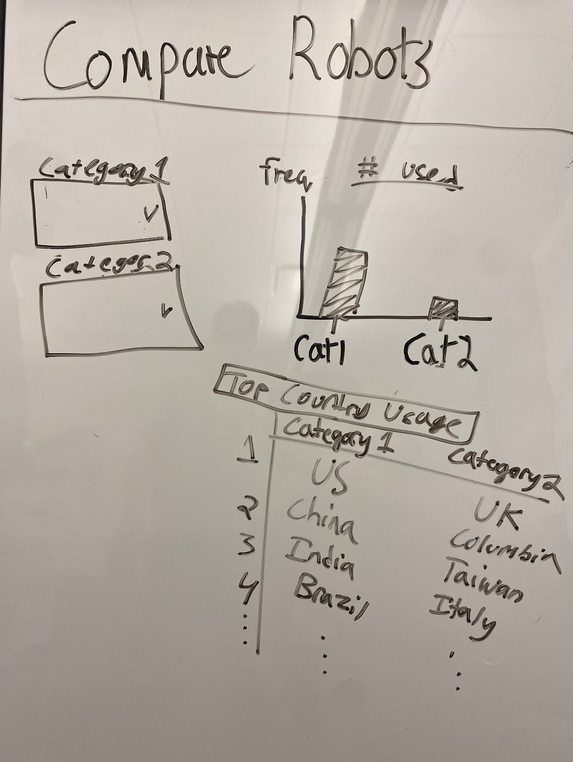 Compare Robots
Category 1
Categor 2
freq
# used
Cat1
Cat2
Top Country Usage
Category 1
Category 2
1 US UK
2 China Columbia
3 India Taiwan
4 Brazil Italy